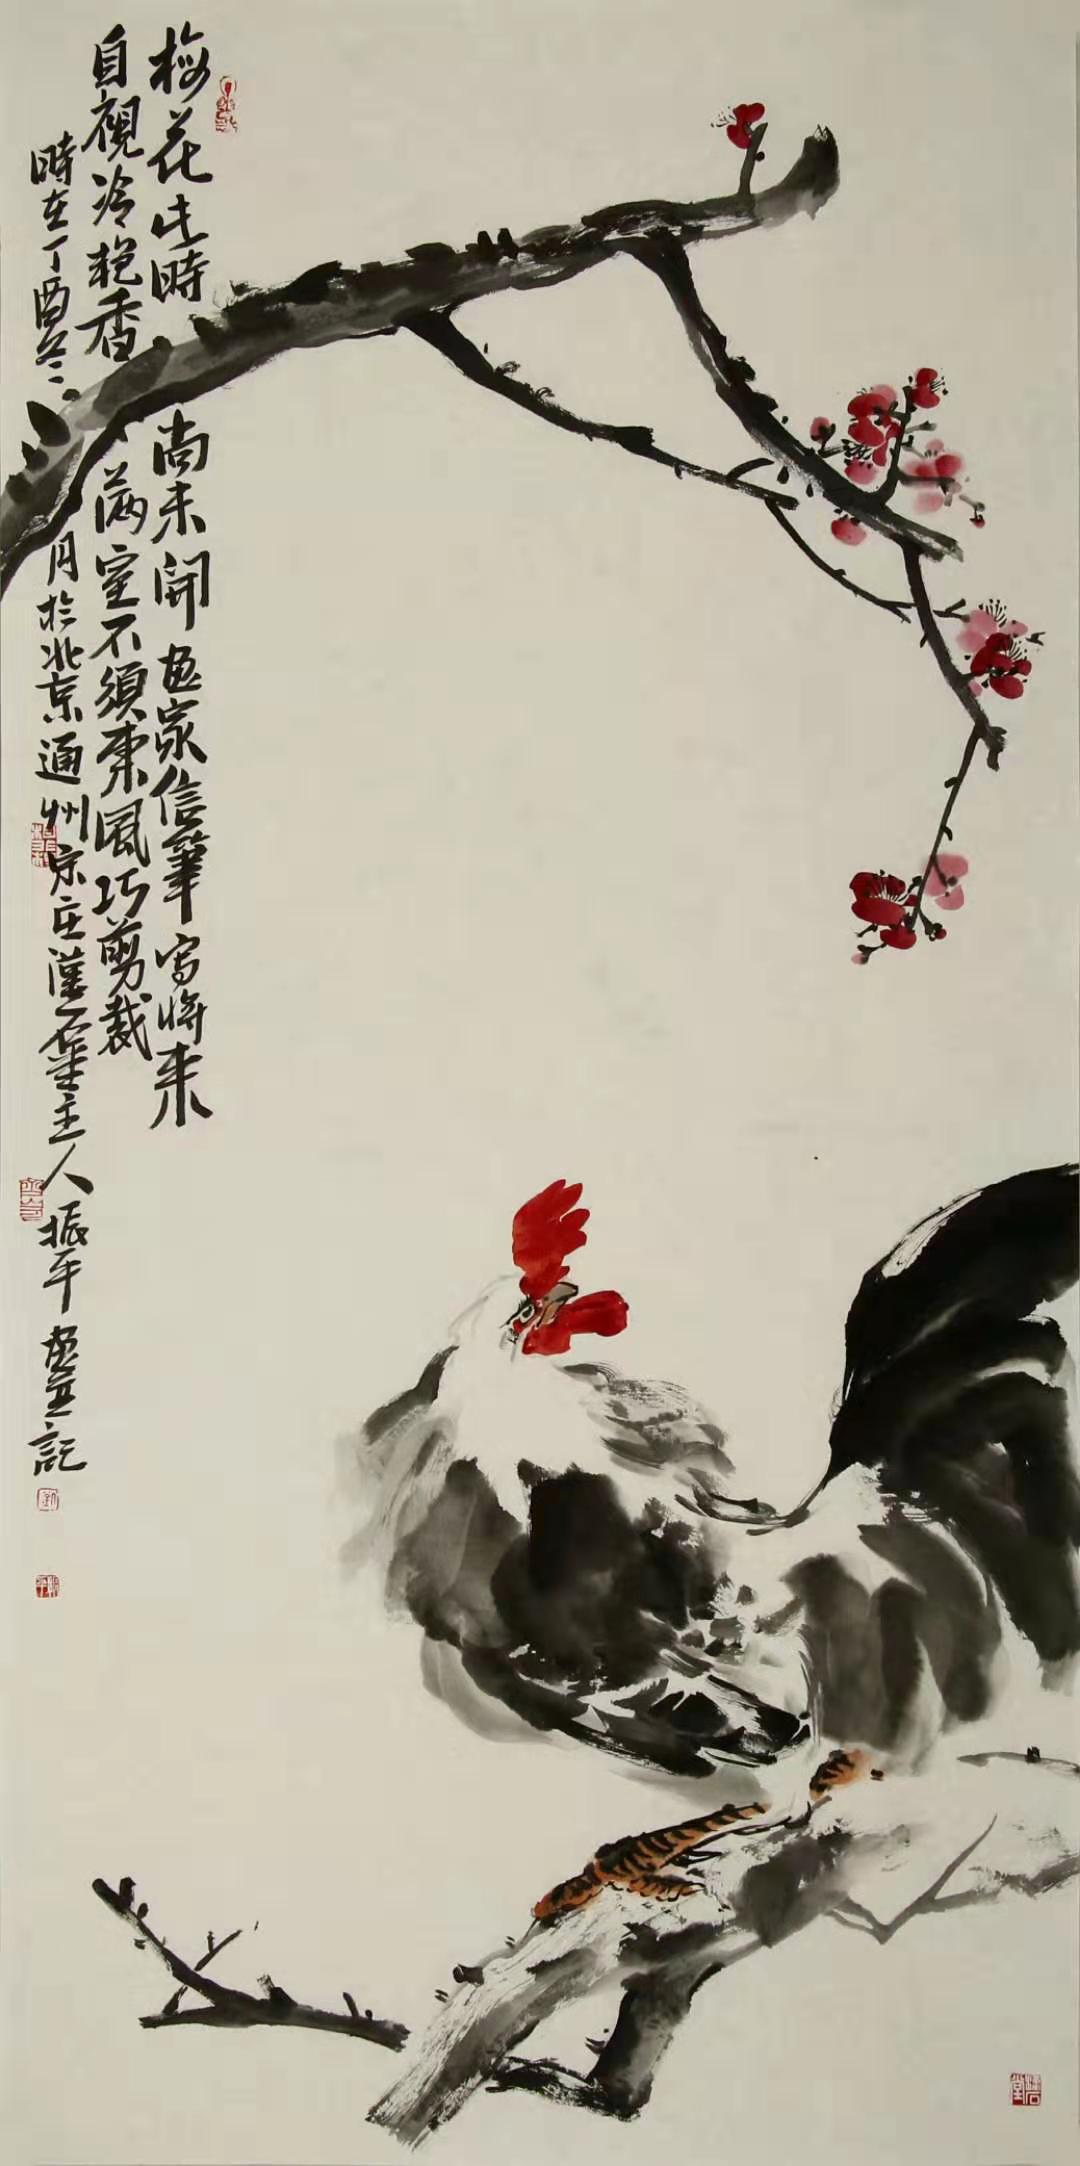 梅花此時尚未開畫家信筆寫將來
自視冷艳香滿室不須東風巧剪裁
時在丁酉冬二月於北京通州宋庄漢石堂主人振平畫並記